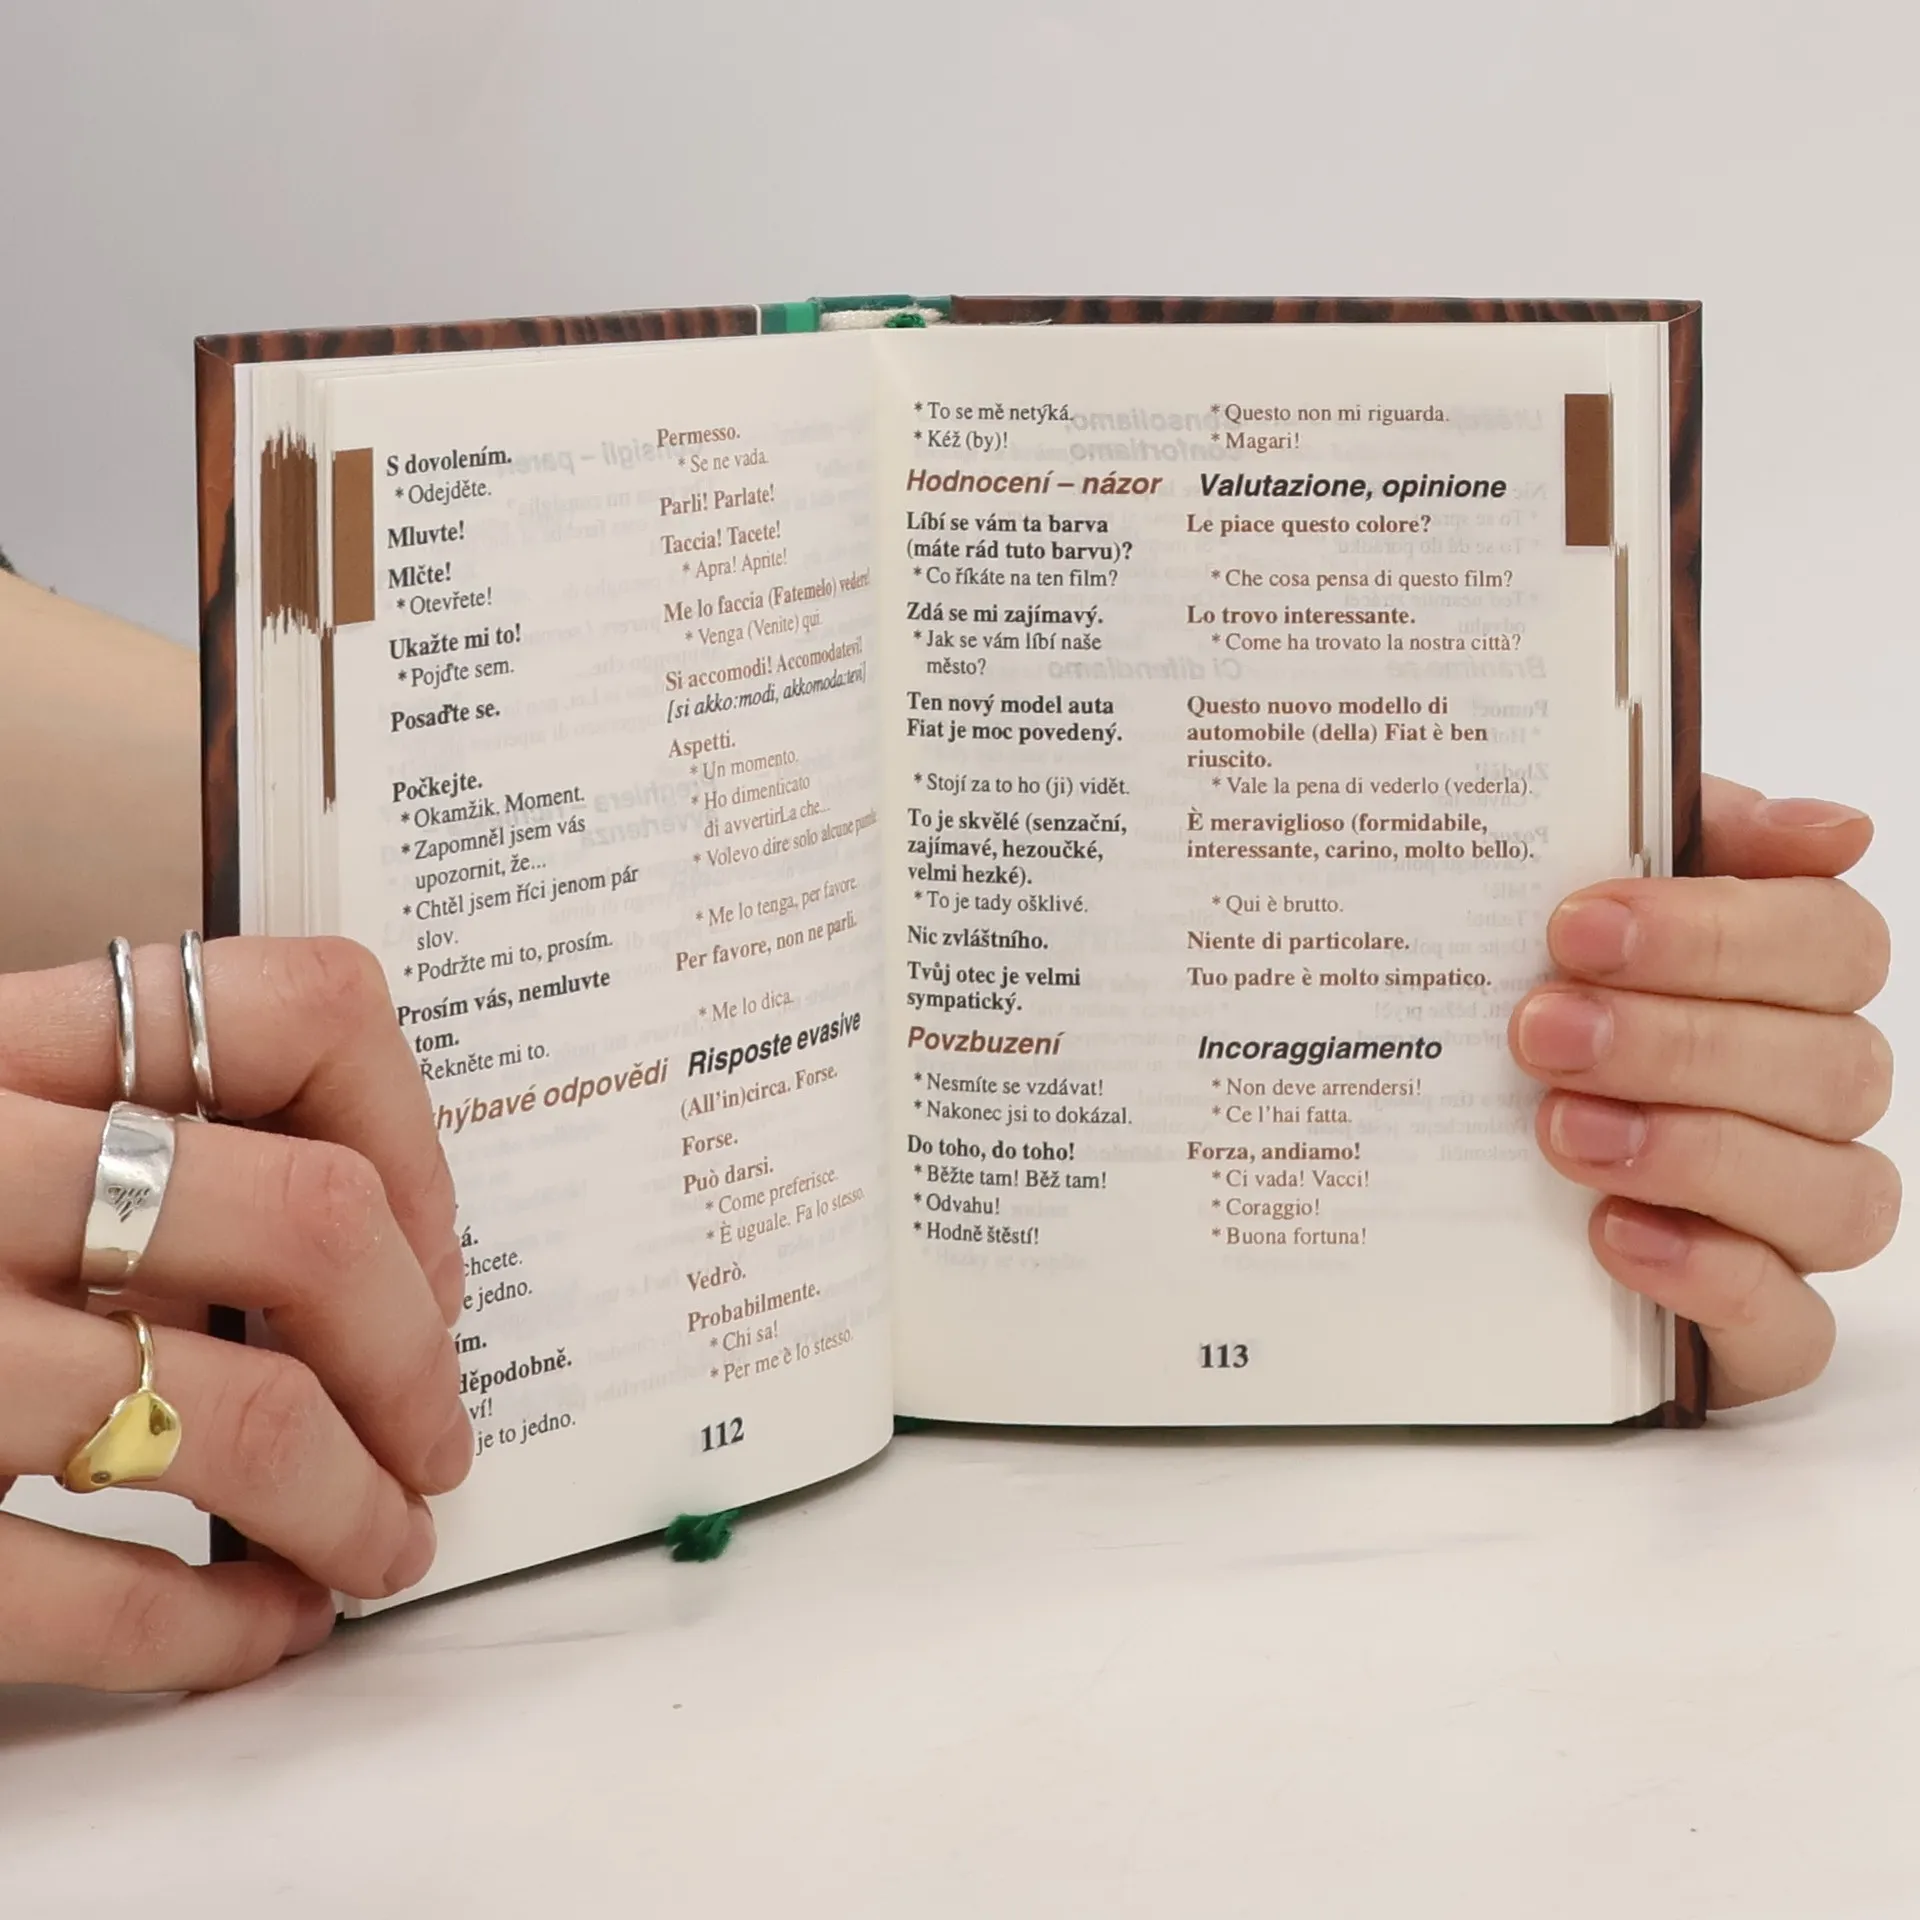 S dovolením.
* Odejděte.
Mluvte!
Mlčte!
* Otevřete!
Ukažte mi to!
* Pojďte sem.
Posaďte se.
Počkejte.
* Okamžik. Moment.
* Zapomněl jsem vás
upozornit, že...
* Chtěl jsem říci jenom pár
slov.
* Podržte mi to, prosím.
Prosím vás, nemluvte
tom.
Řekněte mi to.
hýbavé odpovědi
á.
chcete.
e jedno.
ím.
děpodobně.
ví!
je to jedno.
Permesso.
* Se ne vada.
Parli! Parlate!
Taccia! Tacete!
* Apra! Aprite!
Me lo faccia (Fatemelo) vedere!
* Venga (Venite) qui.
Si accomodi! Accomodatevi!
[si akko:modi, akkomoda:tevi]
Aspetti.
* Un momento.
* Ho dimenticato
di avvertirLa che...
* Volevo dire solo alcune parole
* Me lo tenga, per favore.
Per favore, non ne parli.
* Me lo dica.
Risposte evasive
(All'in)circa. Forse.
Forse.
Può darsi.
* Come preferisce.
* È uguale. Fa lo stesso.
Vedrò.
Probabilmente.
* Chi sa!
* Per me è lo stesso.
112
* To se mě netýká.
* Kéž (by)!
Hodnocení – názor
Líbí se vám ta barva
(máte rád tuto barvu)?
* Co říkáte na ten film?
Zdá se mi zajímavý.
* Jak se vám líbí naše
město?
Ten nový model auta
Fiat je moc povedený.
* Stojí za to ho (ji) vidět.
To je skvělé (senzační,
zajímavé, hezoučké,
velmi hezké).
* To je tady ošklivé.
Nic zvláštního.
Tvůj otec je velmi
sympatický.
Povzbuzení
* Nesmíte se vzdávat!
* Nakonec jsi to dokázal.
Do toho, do toho!
* Běžte tam! Běž tam!
* Odvahu!
* Hodně štěstí!
* Questo non mi riguarda.
* Magari!
Valutazione, opinione
Le piace questo colore?
* Che cosa pensa di questo film?
Lo trovo interessante.
* Come ha trovato la nostra città?
Questo nuovo modello di
automobile (della) Fiat è ben
riuscito.
* Vale la pena di vederlo (vederla).
È meraviglioso (formidabile,
interessante, carino, molto bello).
* Qui è brutto.
Niente di particolare.
Tuo padre è molto simpatico.
Incoraggiamento
* Non deve arrendersi!
* Ce l'hai fatta.
Forza, andiamo!
* Ci vada! Vacci!
* Coraggio!
* Buona fortuna!
113